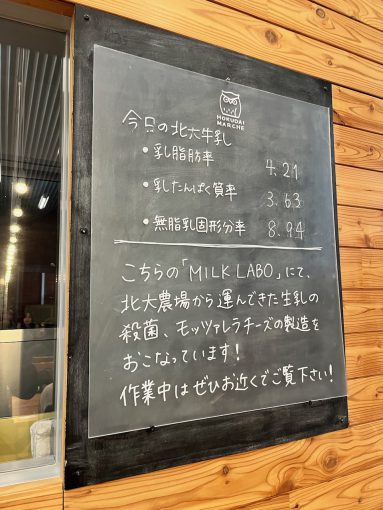 HOKUDAI
MARCHE
今日の北大牛乳
・乳脂肪率 4.21
・乳たんぱく質率 3.63
・無脂乳固形分率 8.94
こちらの「MILK LABO」にて、
北大農場から運んできた生乳の
殺菌、モッツァレラチーズの製造を
おこなっています!
作業中はぜひお近くでご覧下さい!